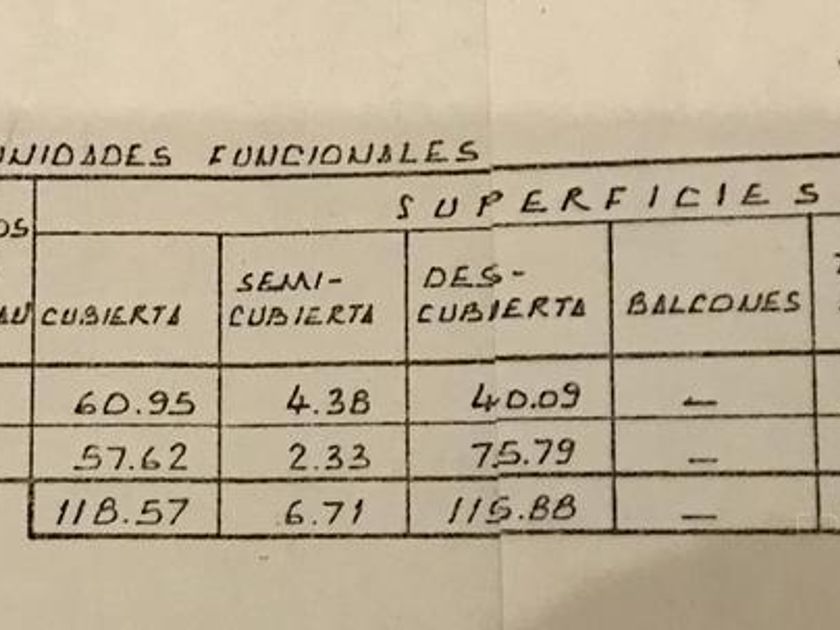 UNIDADES FUNCIONALES
SUPERFICIES
OS
CUBIERTA
SEMI-
CUBIERTA
DES-
CUBIERTA
BALCONES
60.95 4.38 40.09 —
57.62 2.33 75.79 —
118.57 6.71 115.88 —